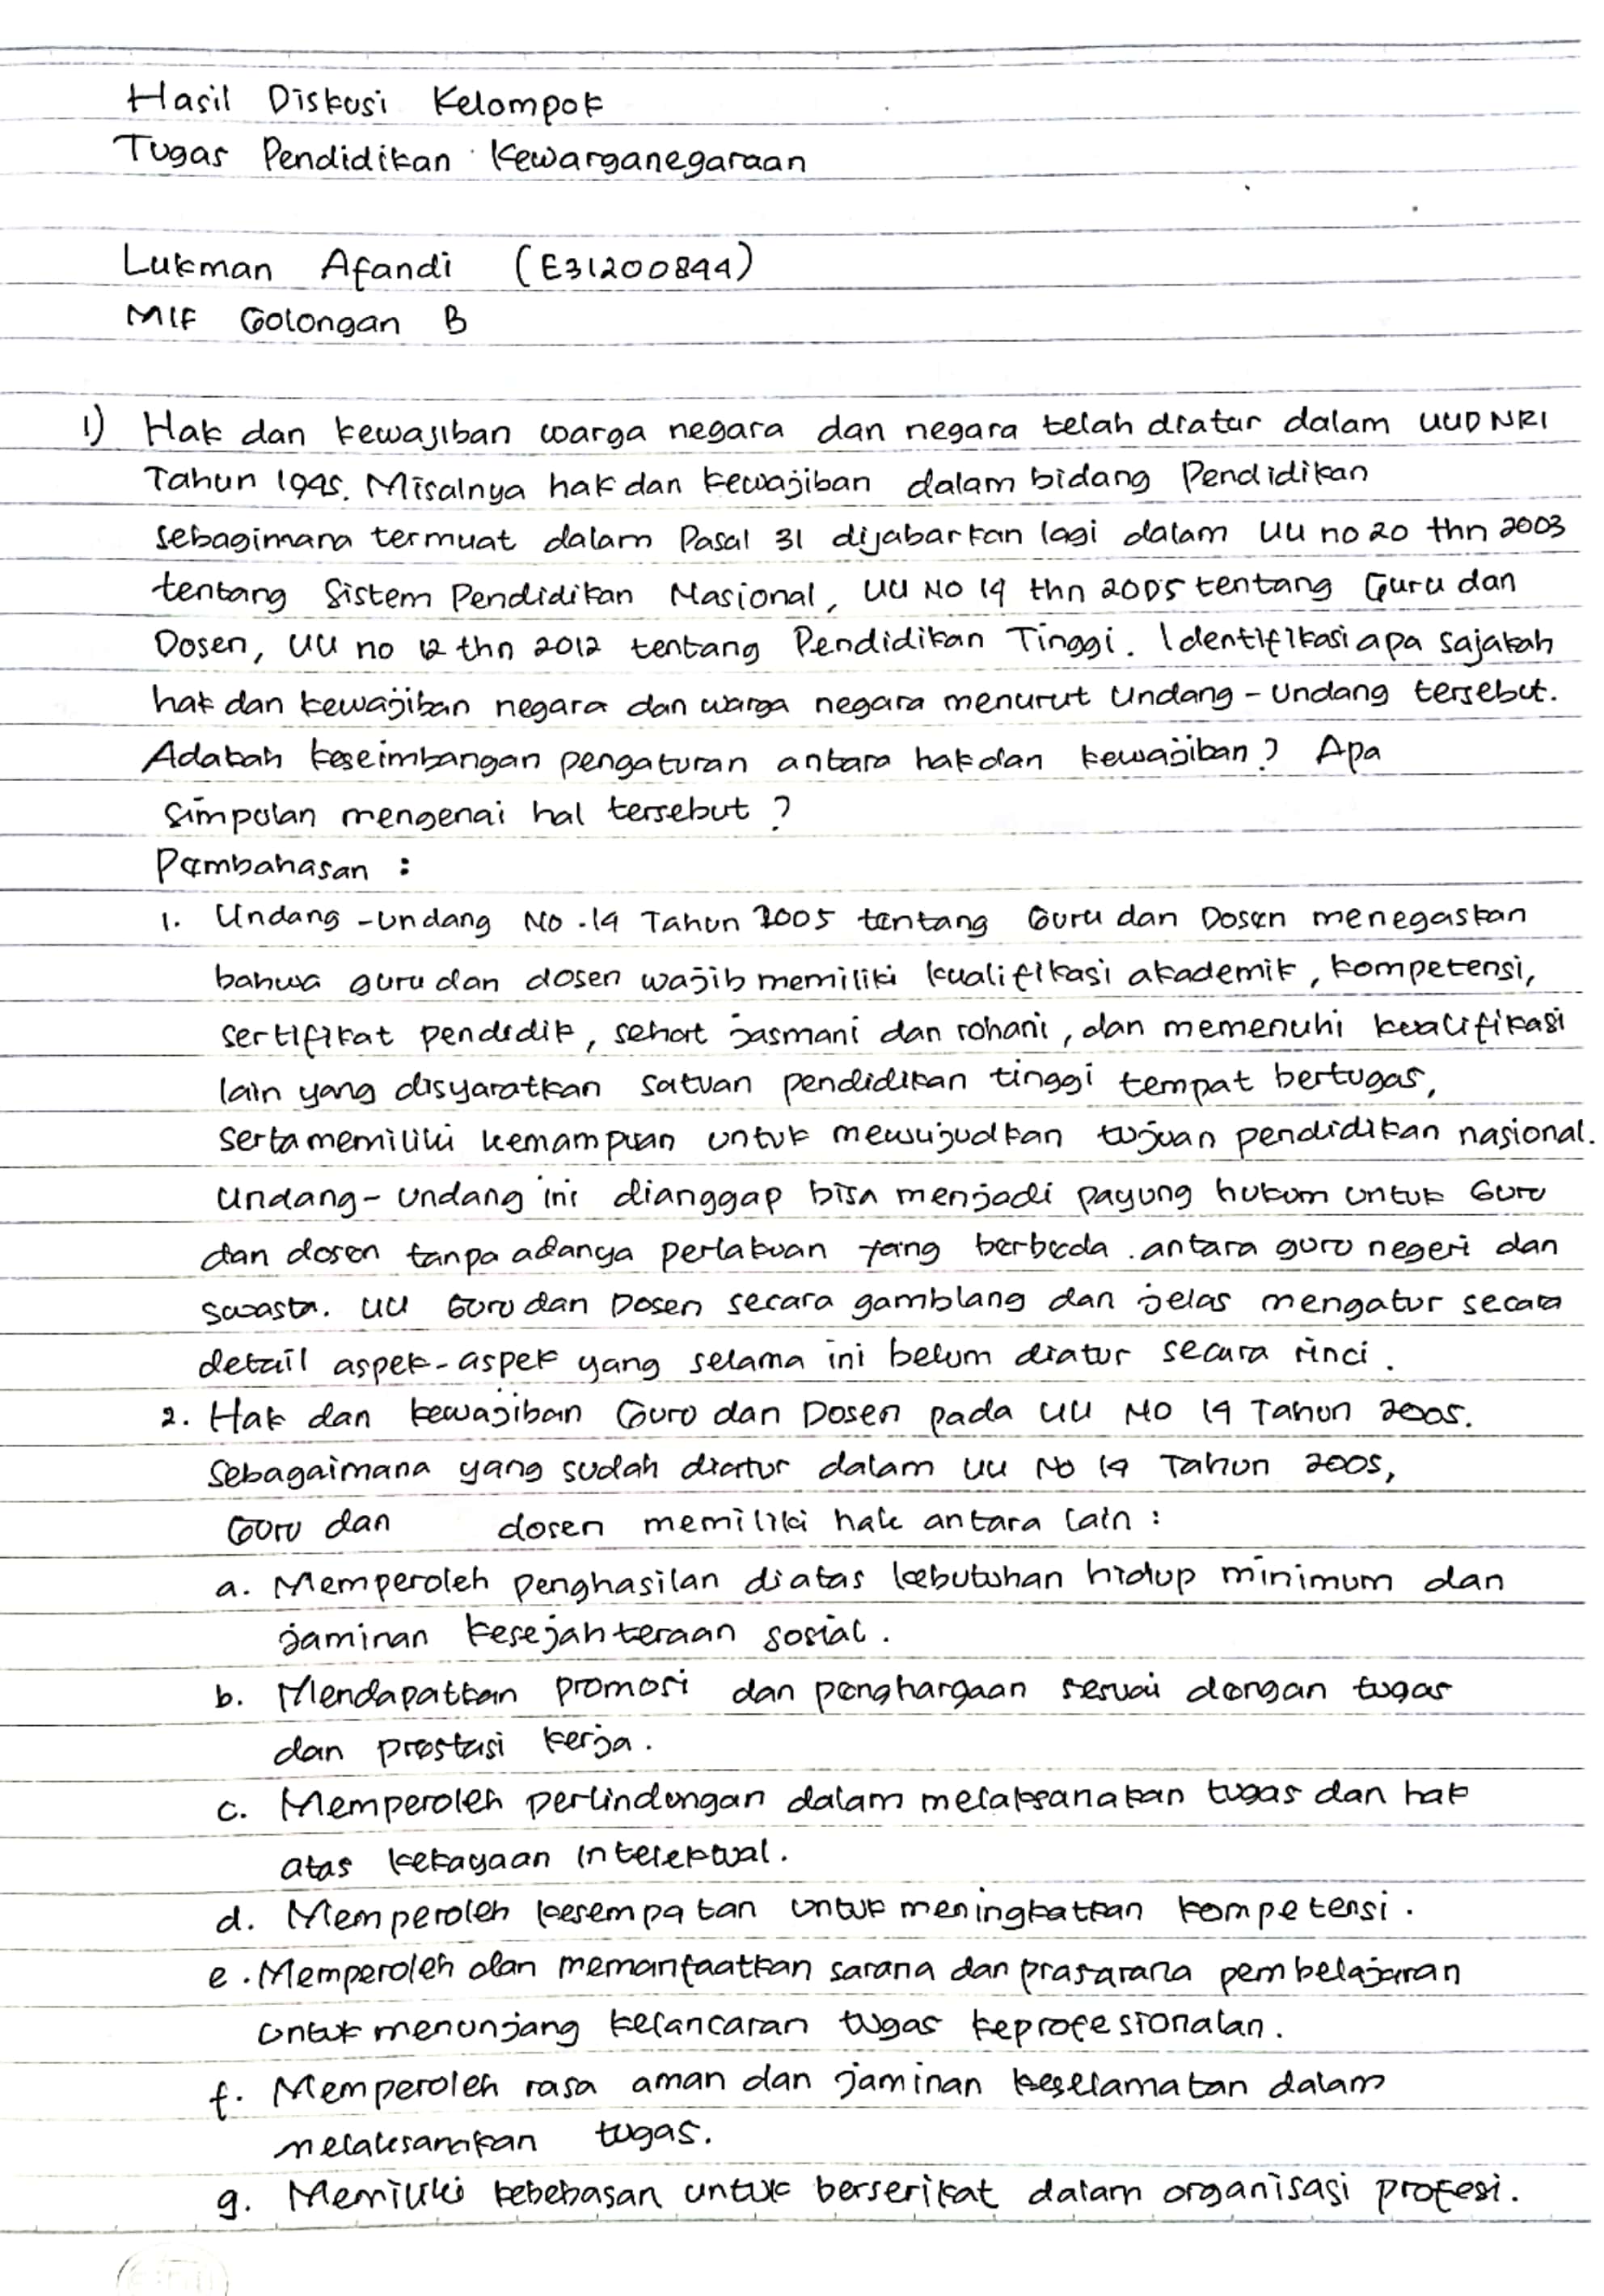 Hasil Diskusi Kelompok
Tugas Pendidikan Kewarganegaraan
Lukman Afandi (E31200844)
MIF Golongan B
1) Hak dan kewajiban warga negara dan negara telah diatur dalam UUD NRI
Tahun 1945. Misalnya hak dan kewajiban dalam bidang Pendidikan
sebagimana termuat dalam Pasal 31 dijabarkan lagi dalam UU no 20 thn 2003
tentang Sistem Pendidikan Nasional, UU No 14 thn 2005 tentang Guru dan
Dosen, UU no 12 thn 2012 tentang Pendidikan Tinggi. Identifikasi apa sajakah
hak dan kewajiban negara dan warga negara menurut Undang-Undang tersebut.
Adakah keseimbangan pengaturan antara hak dan kewajiban? Apa
simpulan mengenai hal tersebut?
Pembahasan :
1. Undang-undang No.14 Tahun 2005 tentang Guru dan Dosen menegaskan
bahwa guru dan dosen wajib memiliki kualifikasi akademik, kompetensi,
sertifikat pendidik, sehat jasmani dan rohani, dan memenuhi kualifikasi
lain yang disyaratkan satuan pendidikan tinggi tempat bertugas,
serta memiliki kemampuan untuk mewujudkan tujuan pendidikan nasional.
Undang-undang ini dianggap bisa menjadi payung hukum untuk Guru
dan dosen tanpa adanya perlakuan yang berbeda antara guru negeri dan
swasta. UU Guru dan Dosen secara gamblang dan jelas mengatur secara
detail aspek-aspek yang selama ini belum diatur secara rinci.
2. Hak dan kewajiban Guru dan Dosen pada UU No 14 Tahun 2005.
Sebagaimana yang sudah diatur dalam UU No 14 Tahun 2005,
Guru dan dosen memiliki hak antara lain :
a. Memperoleh penghasilan diatas kebutuhan hidup minimum dan
jaminan kesejahteraan sosial.
b. Mendapatkan promosi dan penghargaan sesuai dengan tugas
dan prestasi kerja.
c. Memperoleh perlindungan dalam melaksanakan tugas dan hak
atas kekayaan intelektual.
d. Memperoleh kesempatan untuk meningkatkan kompetensi.
e. Memperoleh dan memanfaatkan sarana dan prasarana pembelajaran
untuk menunjang kelancaran tugas keprofesionalan.
f. Memperoleh rasa aman dan jaminan keselamatan dalam
melaksanakan tugas.
g. Memiliki kebebasan untuk berserikat dalam organisasi profesi.